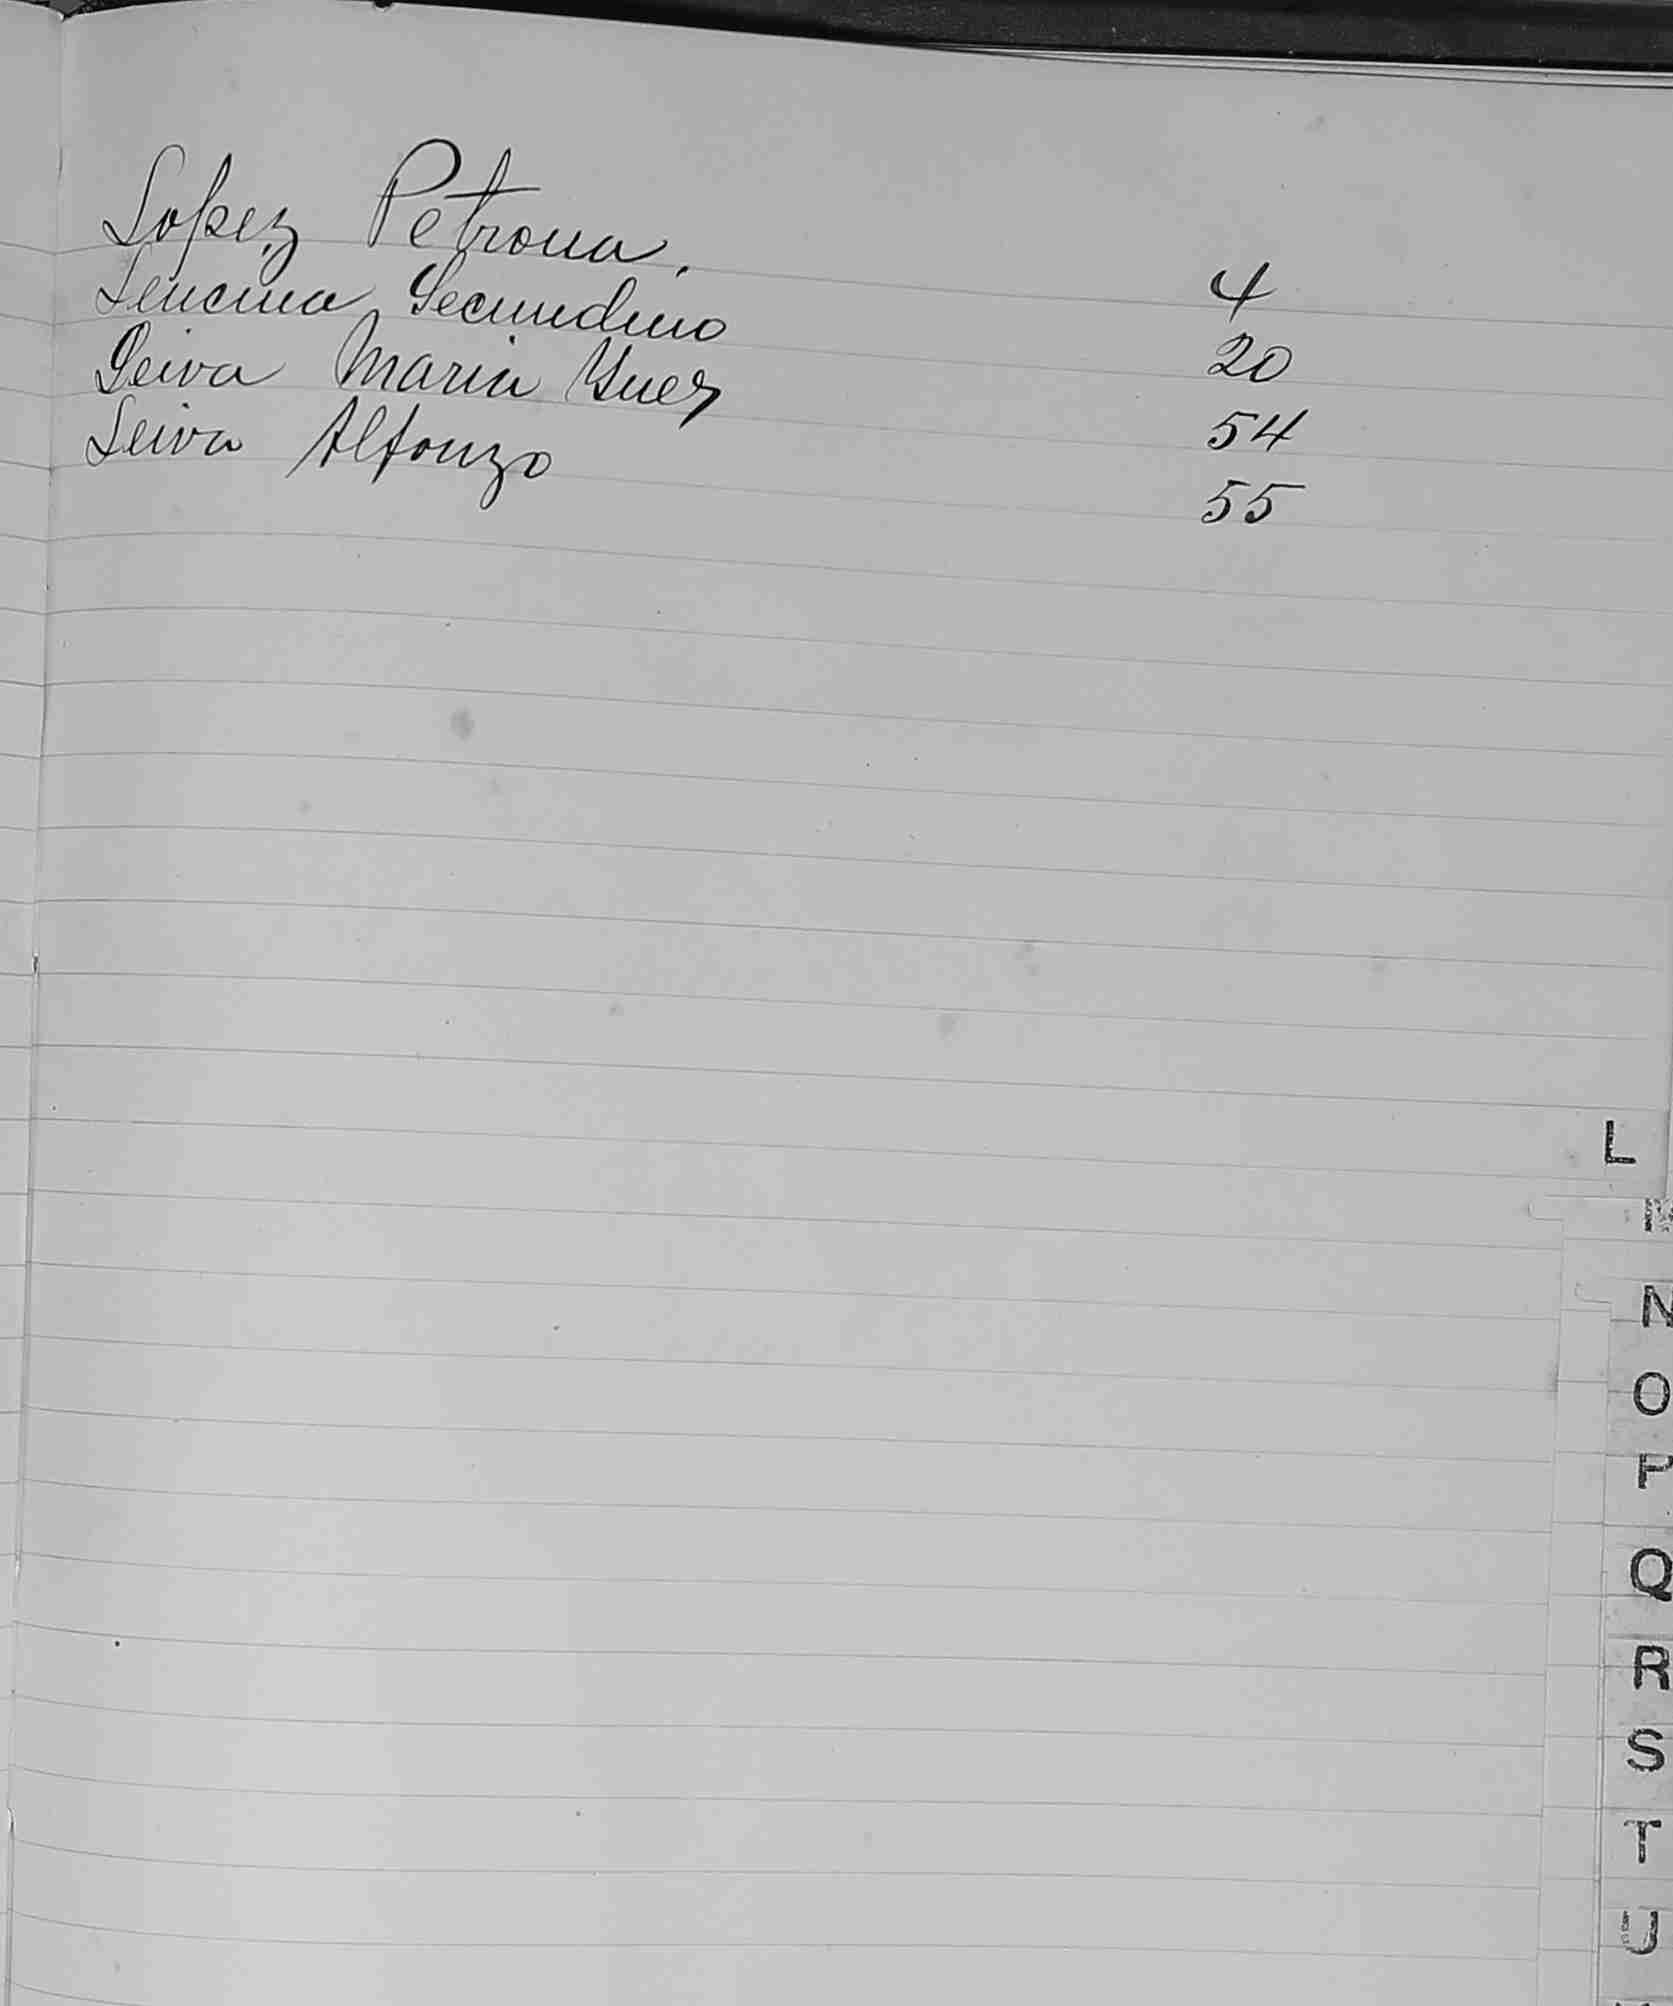 Lopez Petrona. 4
Lencina Secundino 20
Leiva Maria Ynez 54
Leiva Alfonzo 55
L
M
N
O
P
Q
R
S
T
U